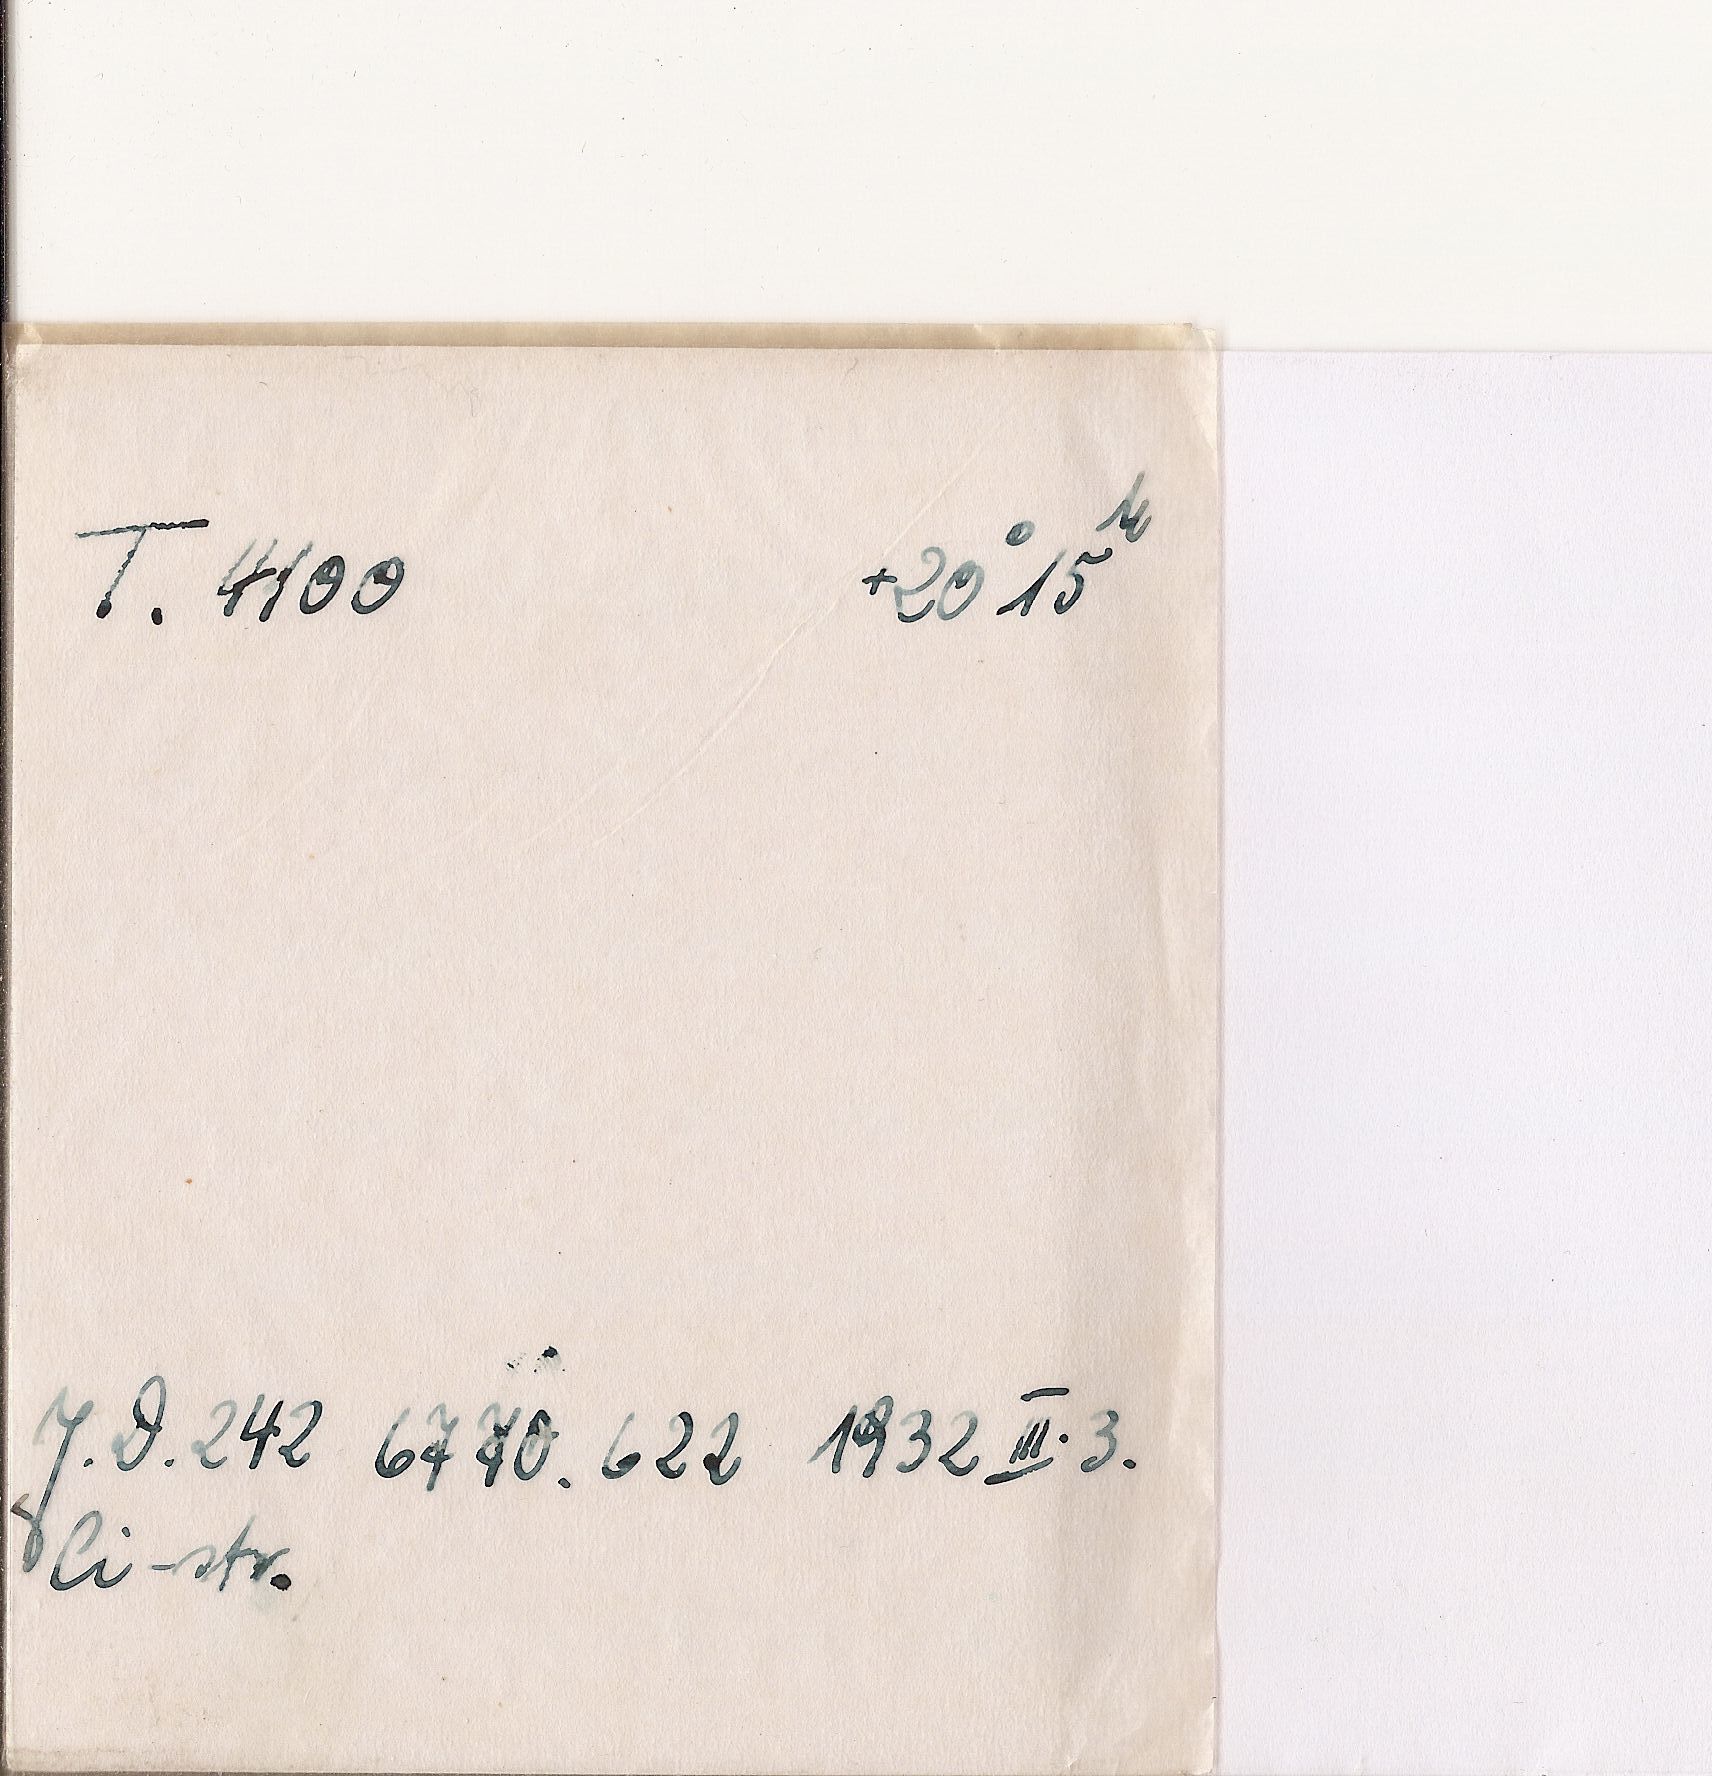 T. 4100 +20°15ʰ
J.D. 242 6770.622 1932 III. 3.
Ci-str.